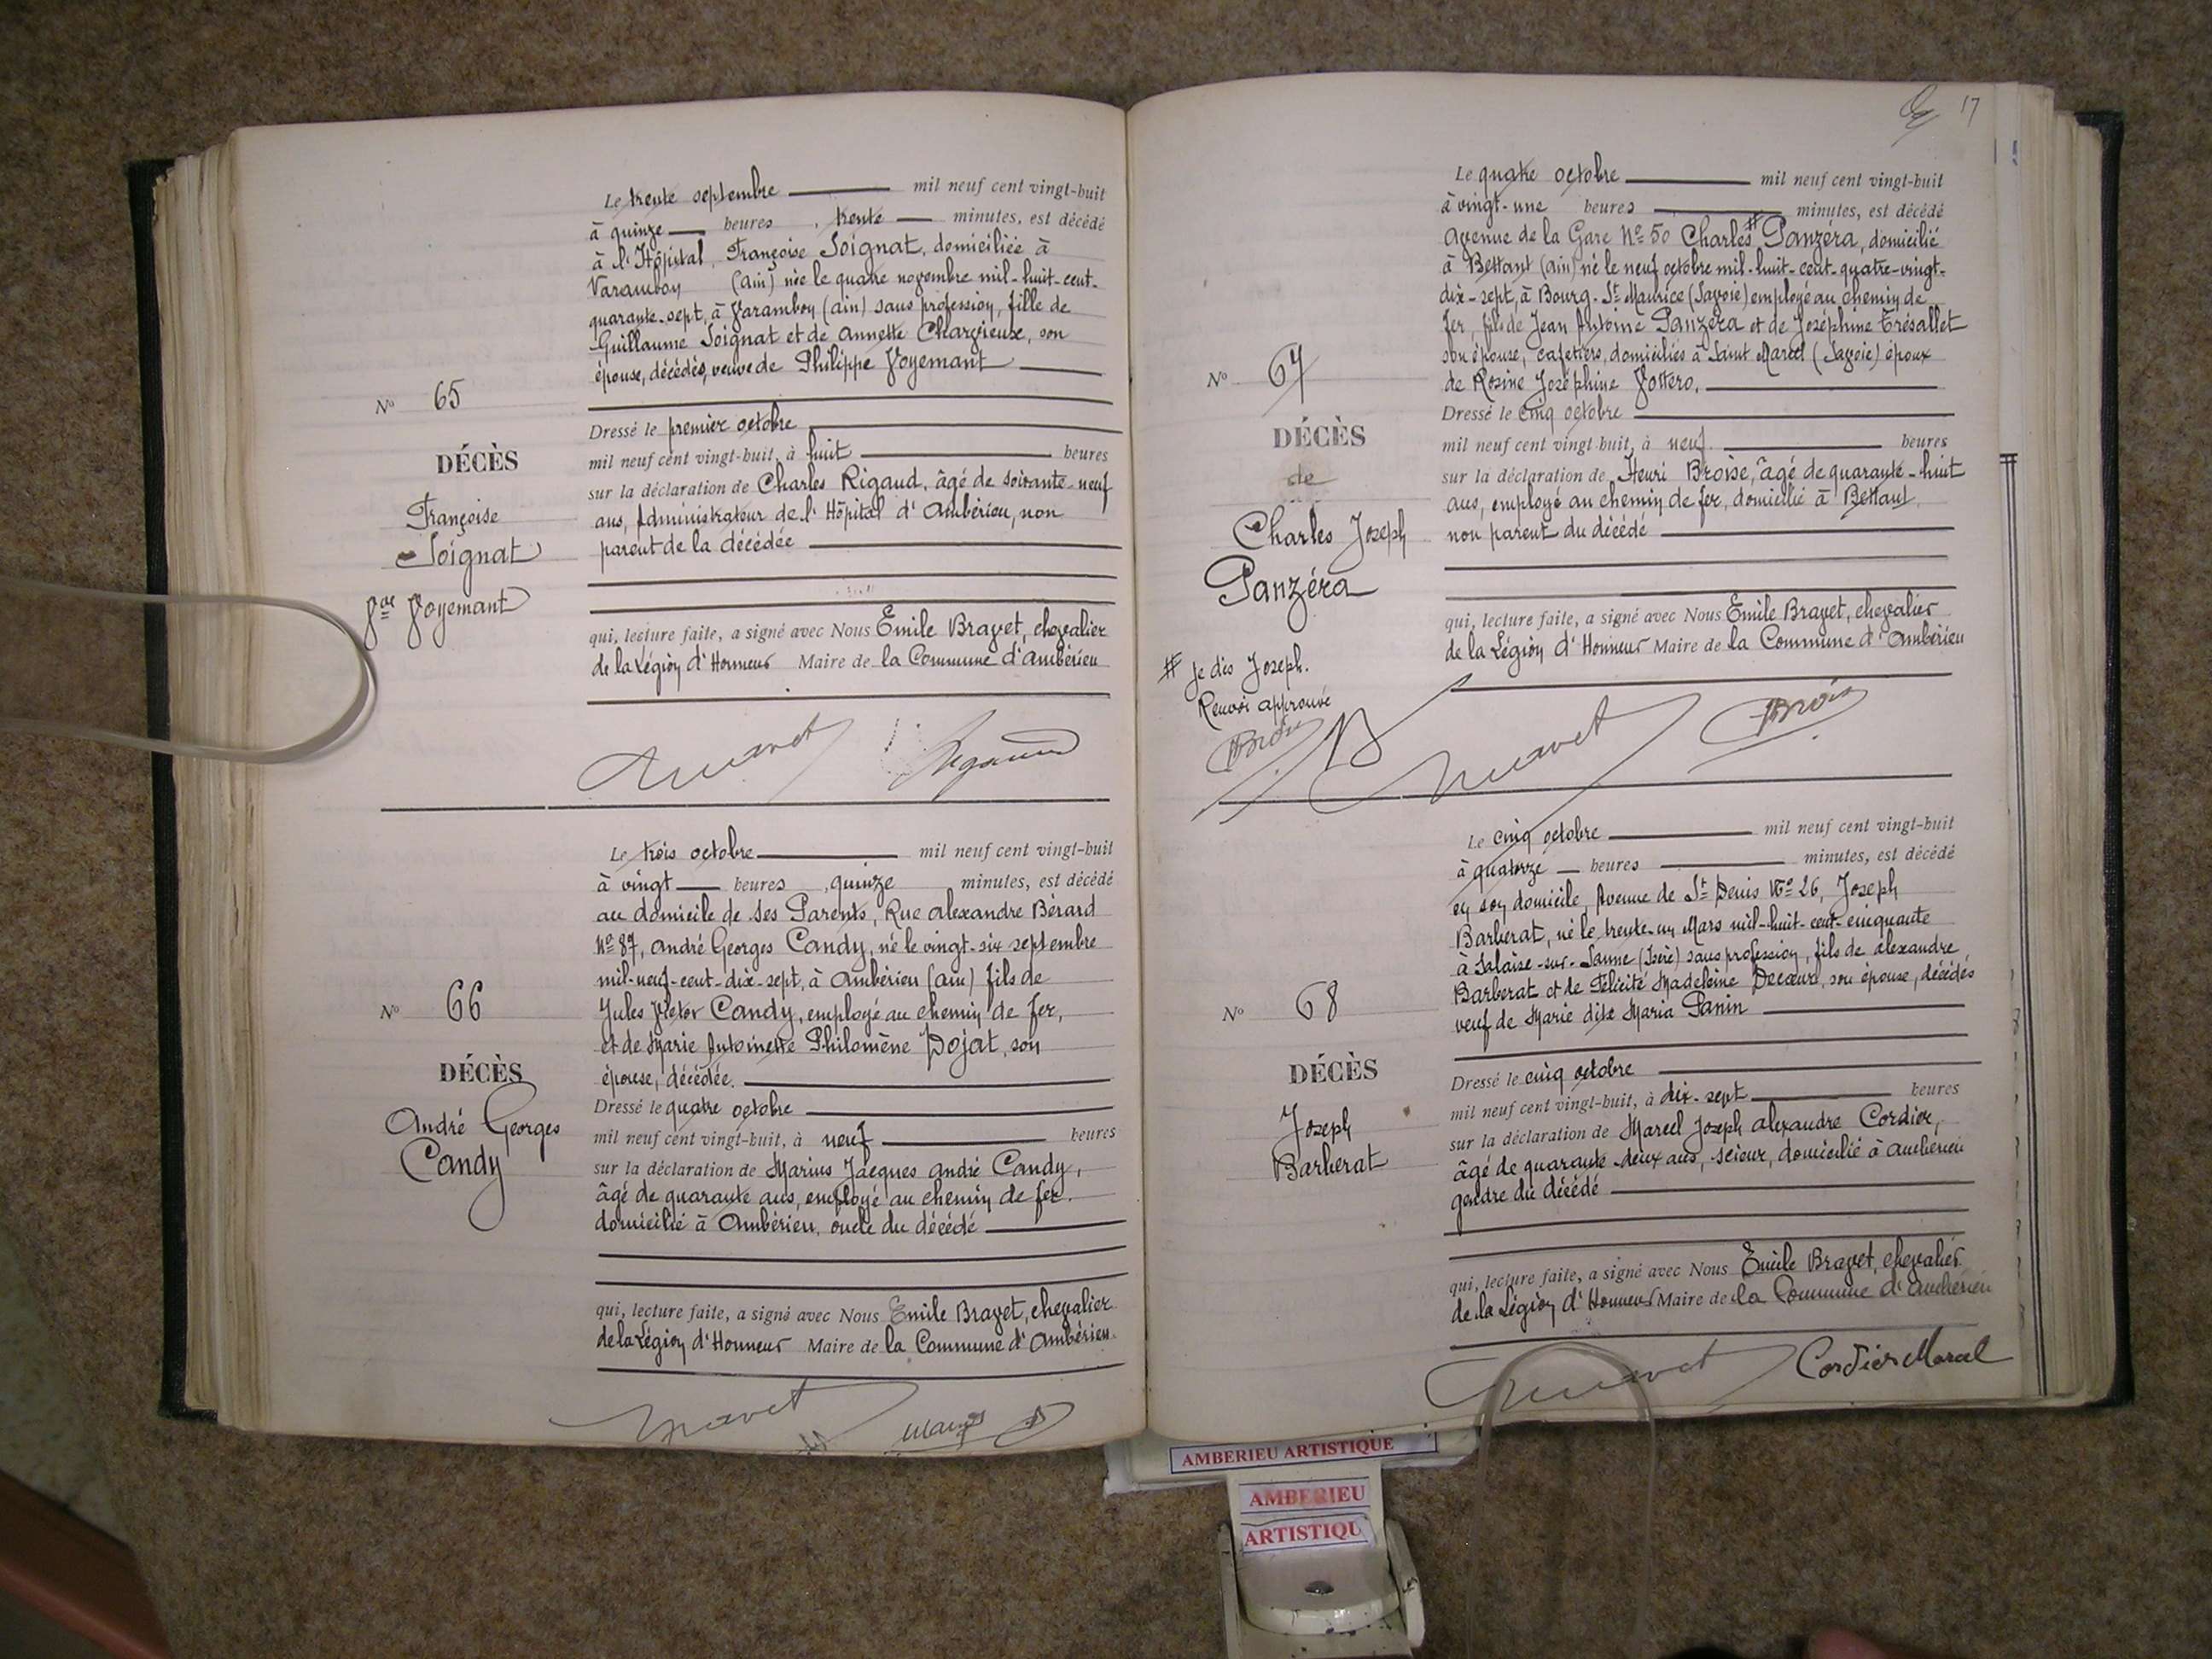 Le trente septembre mil neuf cent vingt-huit
à quinze heures, trente minutes, est décédé
à l'Hôpital, Françoise Soignat, domiciliée à
Varambon (ain) née le quatre novembre mil-huit-cent-
quarante-sept, à Varambon (ain) sans profession, fille de
Guillaume Soignat et de Annette Chargieuse, son
épouse, décédés, veuve de Philippe Voyemant
No 65
Dressé le premier octobre
DÉCÈS
mil neuf cent vingt-huit, à huit heures
sur la déclaration de Charles Rigaud, âgé de soixante-neuf
Françoise
ans, Administrateur de l'Hôpital d'Ambérieu, non
Soignat
parent de la décédée
Vve Voyemant
qui, lecture faite, a signé avec Nous Emile Bravet, chevalier
de la Légion d'Honneur Maire de la Commune d'Ambérieu
Bravet Rigaud
Le trois octobre mil neuf cent vingt-huit
à vingt heures, quinze minutes, est décédé
au domicile de ses Parents, Rue Alexandre Bérard
No 87, André Georges Candy, né le vingt-six septembre
mil-neuf-cent-dix-sept, à Ambérieu (ain) fils de
No 66
Jules Victor Candy, employé au chemin de fer,
et de Marie Antoinette Philomène Dojat, son
DÉCÈS
épouse, décédée.
André Georges
Dressé le quatre octobre
Candy
mil neuf cent vingt-huit, à neuf heures
sur la déclaration de Marius Jacques André Candy,
âgé de quarante ans, employé au chemin de fer.
domicilié à Ambérieu, oncle du décédé
qui, lecture faite, a signé avec Nous Emile Bravet, chevalier
de la Légion d'Honneur Maire de la Commune d'Ambérieu.
Bravet
17
Le quatre octobre mil neuf cent vingt-huit
à vingt-une heures minutes, est décédé
Avenue de la Gare No 50 Charles # Panzéra, domicilié
à Bettant (ain) né le neuf octobre mil-huit-cent-quatre-vingt-
dix-sept, à Bourg-St Maurice (Savoie) employé au chemin de
fer, fils de Jean Antoine Panzéra et de Joséphine Trésallet
son épouse, cafetiers, domiciliés à Saint Marcel (Savoie) époux
No 67
de Rosine Joséphine Vottero.
Dressé le cinq octobre
DÉCÈS
mil neuf cent vingt-huit, à neuf heures
de
sur la déclaration de Henri Broise, âgé de quarante-huit
ans, employé au chemin de fer, domicilié à Bettant,
Charles Joseph
non parent du décédé
Panzéra
qui, lecture faite, a signé avec Nous Emile Bravet, chevalier
de la Légion d'Honneur Maire de la Commune d'Ambérieu
# Je dis Joseph.
Renvoi approuvé
Bravet
Le cinq octobre mil neuf cent vingt-huit
à quatorze heures minutes, est décédé
en son domicile, Avenue de St Denis No 26, Joseph
Barberat, né le trente-un Mars mil-huit-cent-cinquante
à Salaise-sur-Sanne (Isère) sans profession, fils de Alexandre
Barberat et de Félicité Madeleine Decœur, son épouse, décédés
No 68
veuf de Marie dite Maria Panin
DÉCÈS
Dressé le cinq octobre
mil neuf cent vingt-huit, à dix-sept heures
Joseph
sur la déclaration de Marcel Joseph Alexandre Cordier,
Barberat
âgé de quarante-deux ans, scieur, domicilié à Ambérieu
gendre du décédé
qui, lecture faite, a signé avec Nous Emile Bravet, chevalier
de la Légion d'Honneur Maire de la Commune d'Ambérieu
Bravet Cordier Marcel
AMBERIEU ARTISTIQUE
AMBERIEU
ARTISTIQU